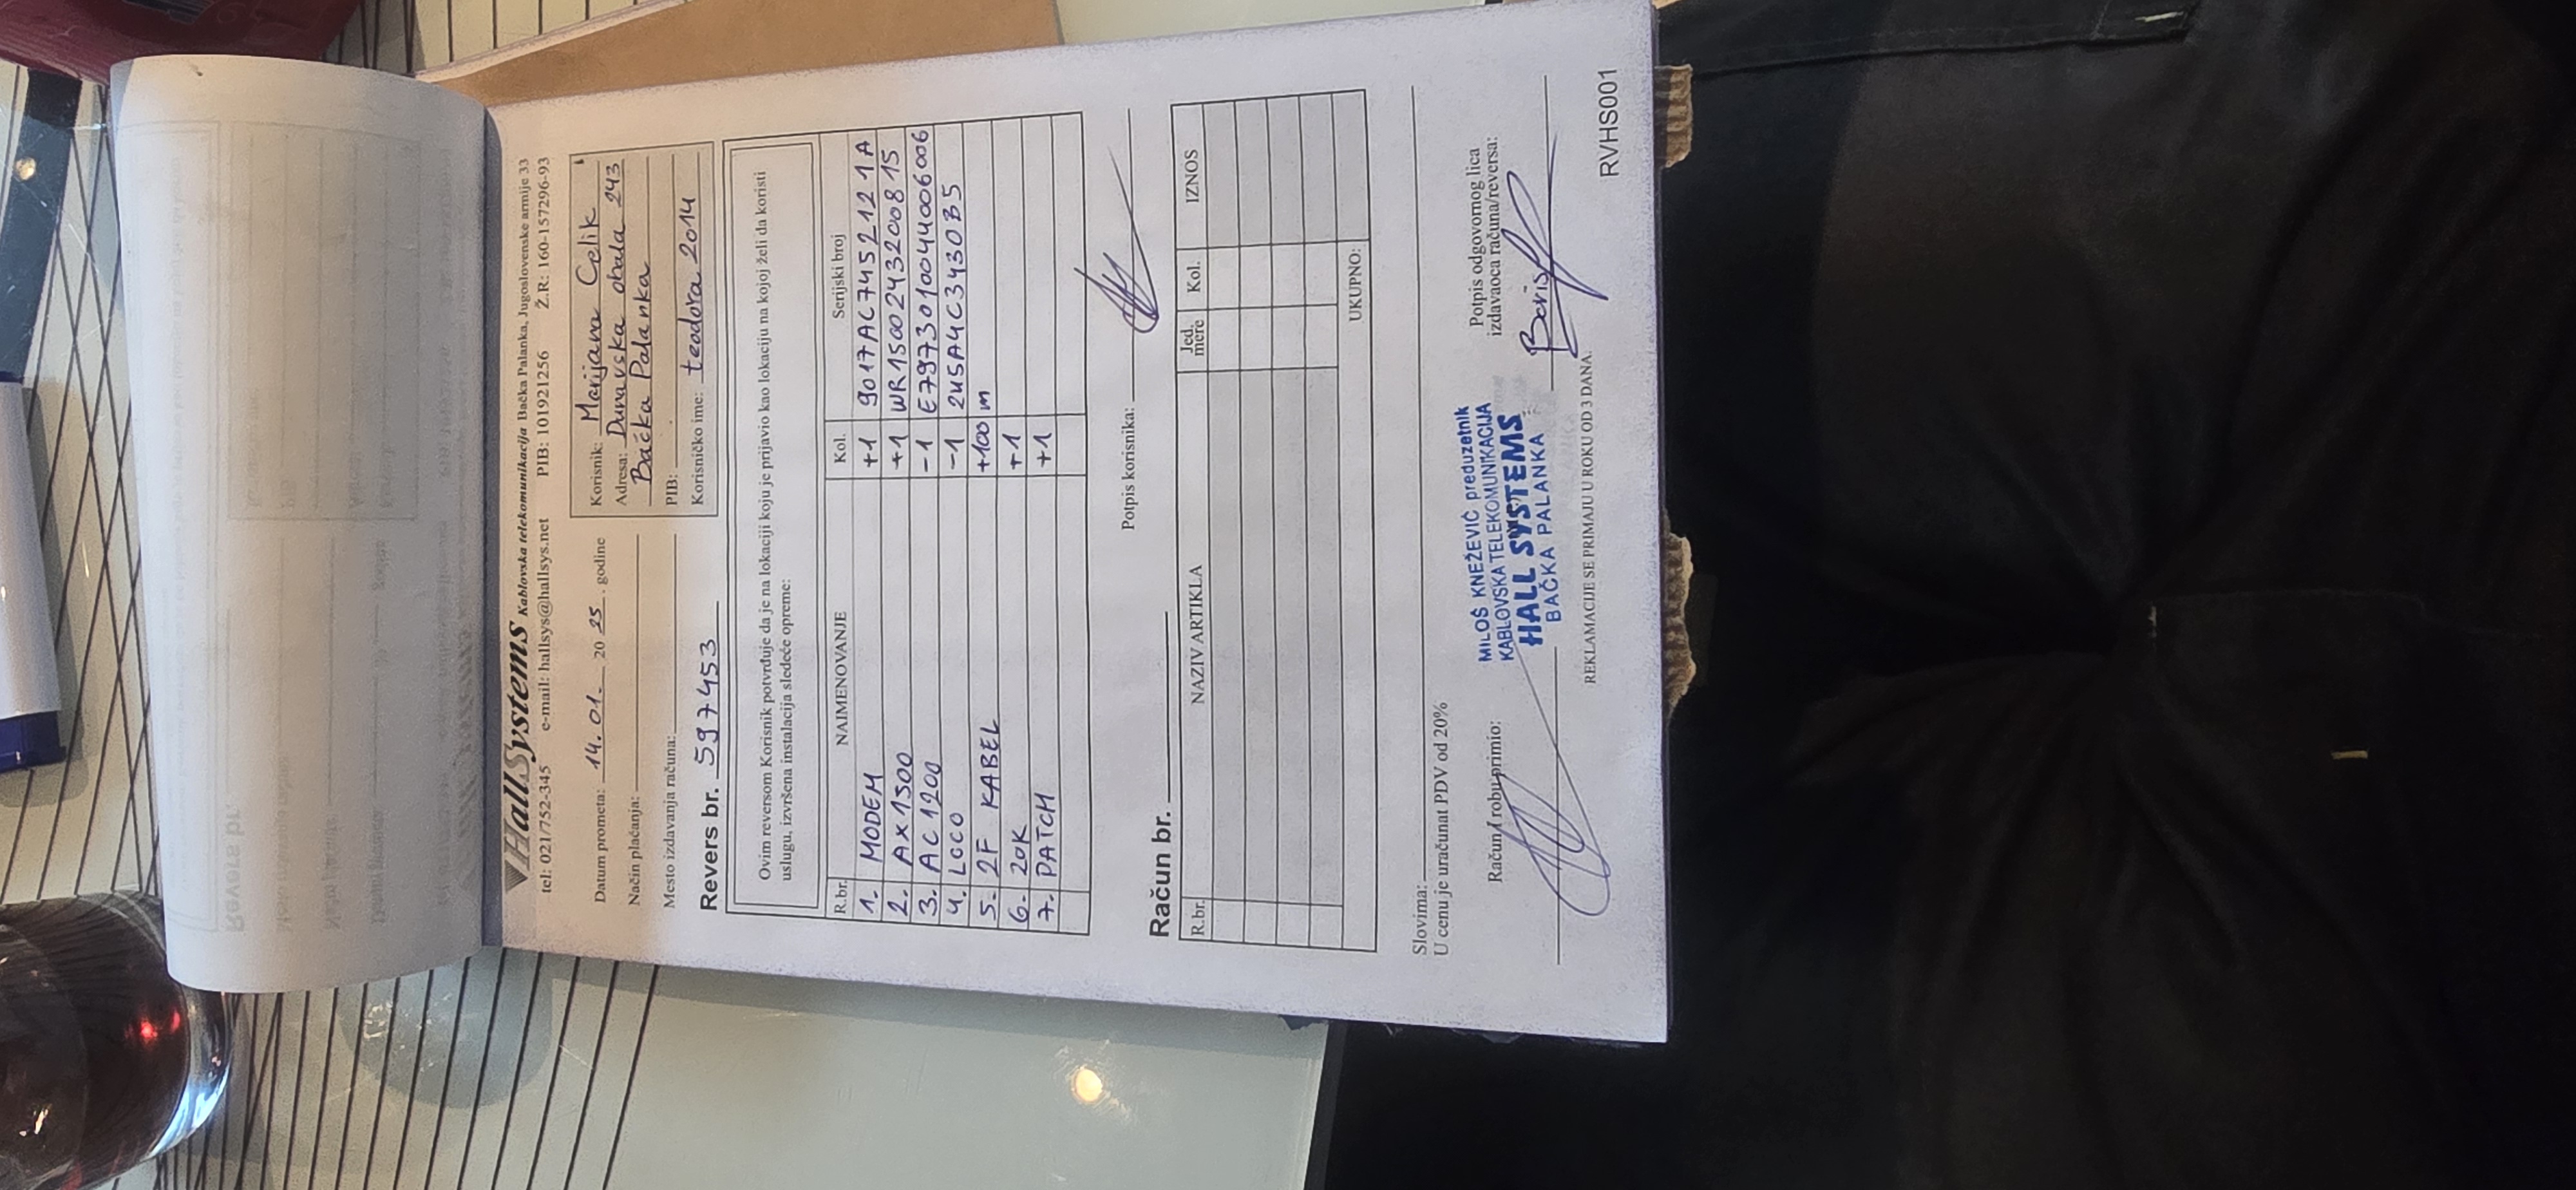 HallSystems Kablovska telekomunikacija Bačka Palanka, Jugoslovenske armije 33
tel: 021/752-345 e-mail: hallsys@hallsys.net PIB: 101921256 Ž.R: 160-157296-93
Datum prometa: 14.01. 20 25. godine
Način plaćanja:
Mesto izdavanja računa:
Korisnik: Marijana Čelik
Adresa: Dunavska obala 243
Bačka Palanka
PIB:
Korisničko ime: teodora 2014
Revers br. 597453
Ovim reversom Korisnik potvrđuje da je na lokaciji koju je prijavio kao lokaciju na kojoj želi da koristi
uslugu, izvršena instalacija sledeće opreme:
R.br. NAIMENOVANJE Kol. Serijski broj
1. MODEM +1 9017AC7452121A
2. AX1500 +1 WR1500243200815
3. AC1200 -1 E7973010044006006
4. LOCO -1 245A4C3430B5
5. 2F KABEL +100 m
6. 20K +1
7. PATCH +1
Potpis korisnika:
Račun br.
R.br. NAZIV ARTIKLA Jed. mere Kol. IZNOS
UKUPNO:
Slovima:
U cenu je uračunat PDV od 20%
Račun/robu primio:
MILOŠ KNEŽEVIĆ preduzetnik
KABLOVSKA TELEKOMUNIKACIJA
HALL SYSTEMS
BAČKA PALANKA
Potpis odgovornog lica
izdavaoca računa/reversa:
Boris
REKLAMACIJE SE PRIMAJU U ROKU OD 3 DANA.
RVHS001
Revers br.